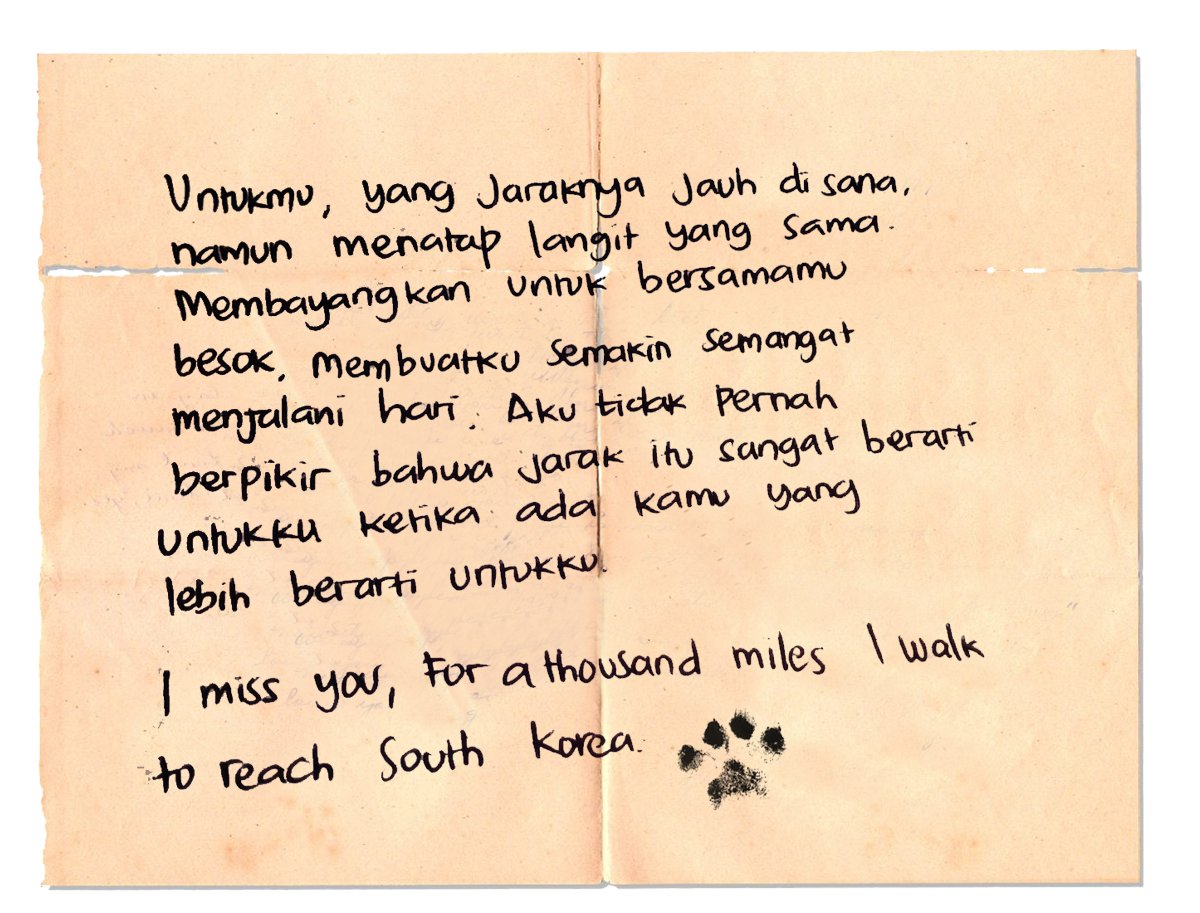 Untukmu, yang Jaraknya Jauh di sana,
namun menatap langit yang sama.
Membayangkan untuk bersamamu
besok, membuatku semakin semangat
menjalani hari. Aku tidak pernah
berpikir bahwa jarak itu sangat berarti
untukku ketika ada kamu yang
lebih berarti untukku.
I miss you, For a thousand miles I walk
to reach South Korea.